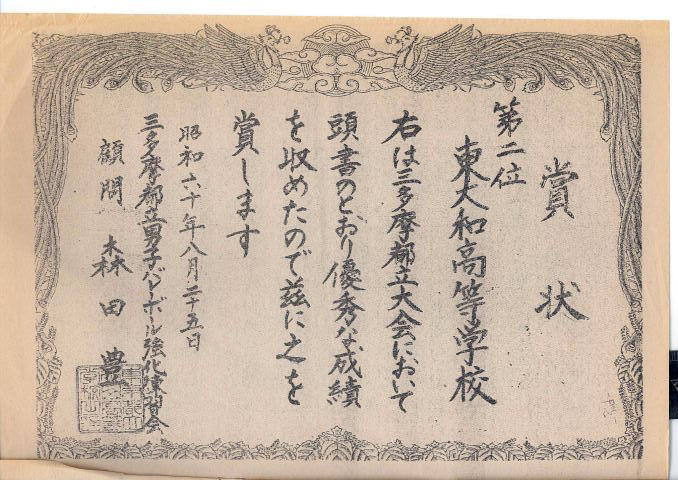 賞状
第二位
東大和高等学校
右は三多摩都立大会において
頭書のとおり優秀な成績
を収めたので茲に之を
賞します
昭和六十年八月二十五日
三多摩都立男子バレーボール強化練習会
顧問 森田豊